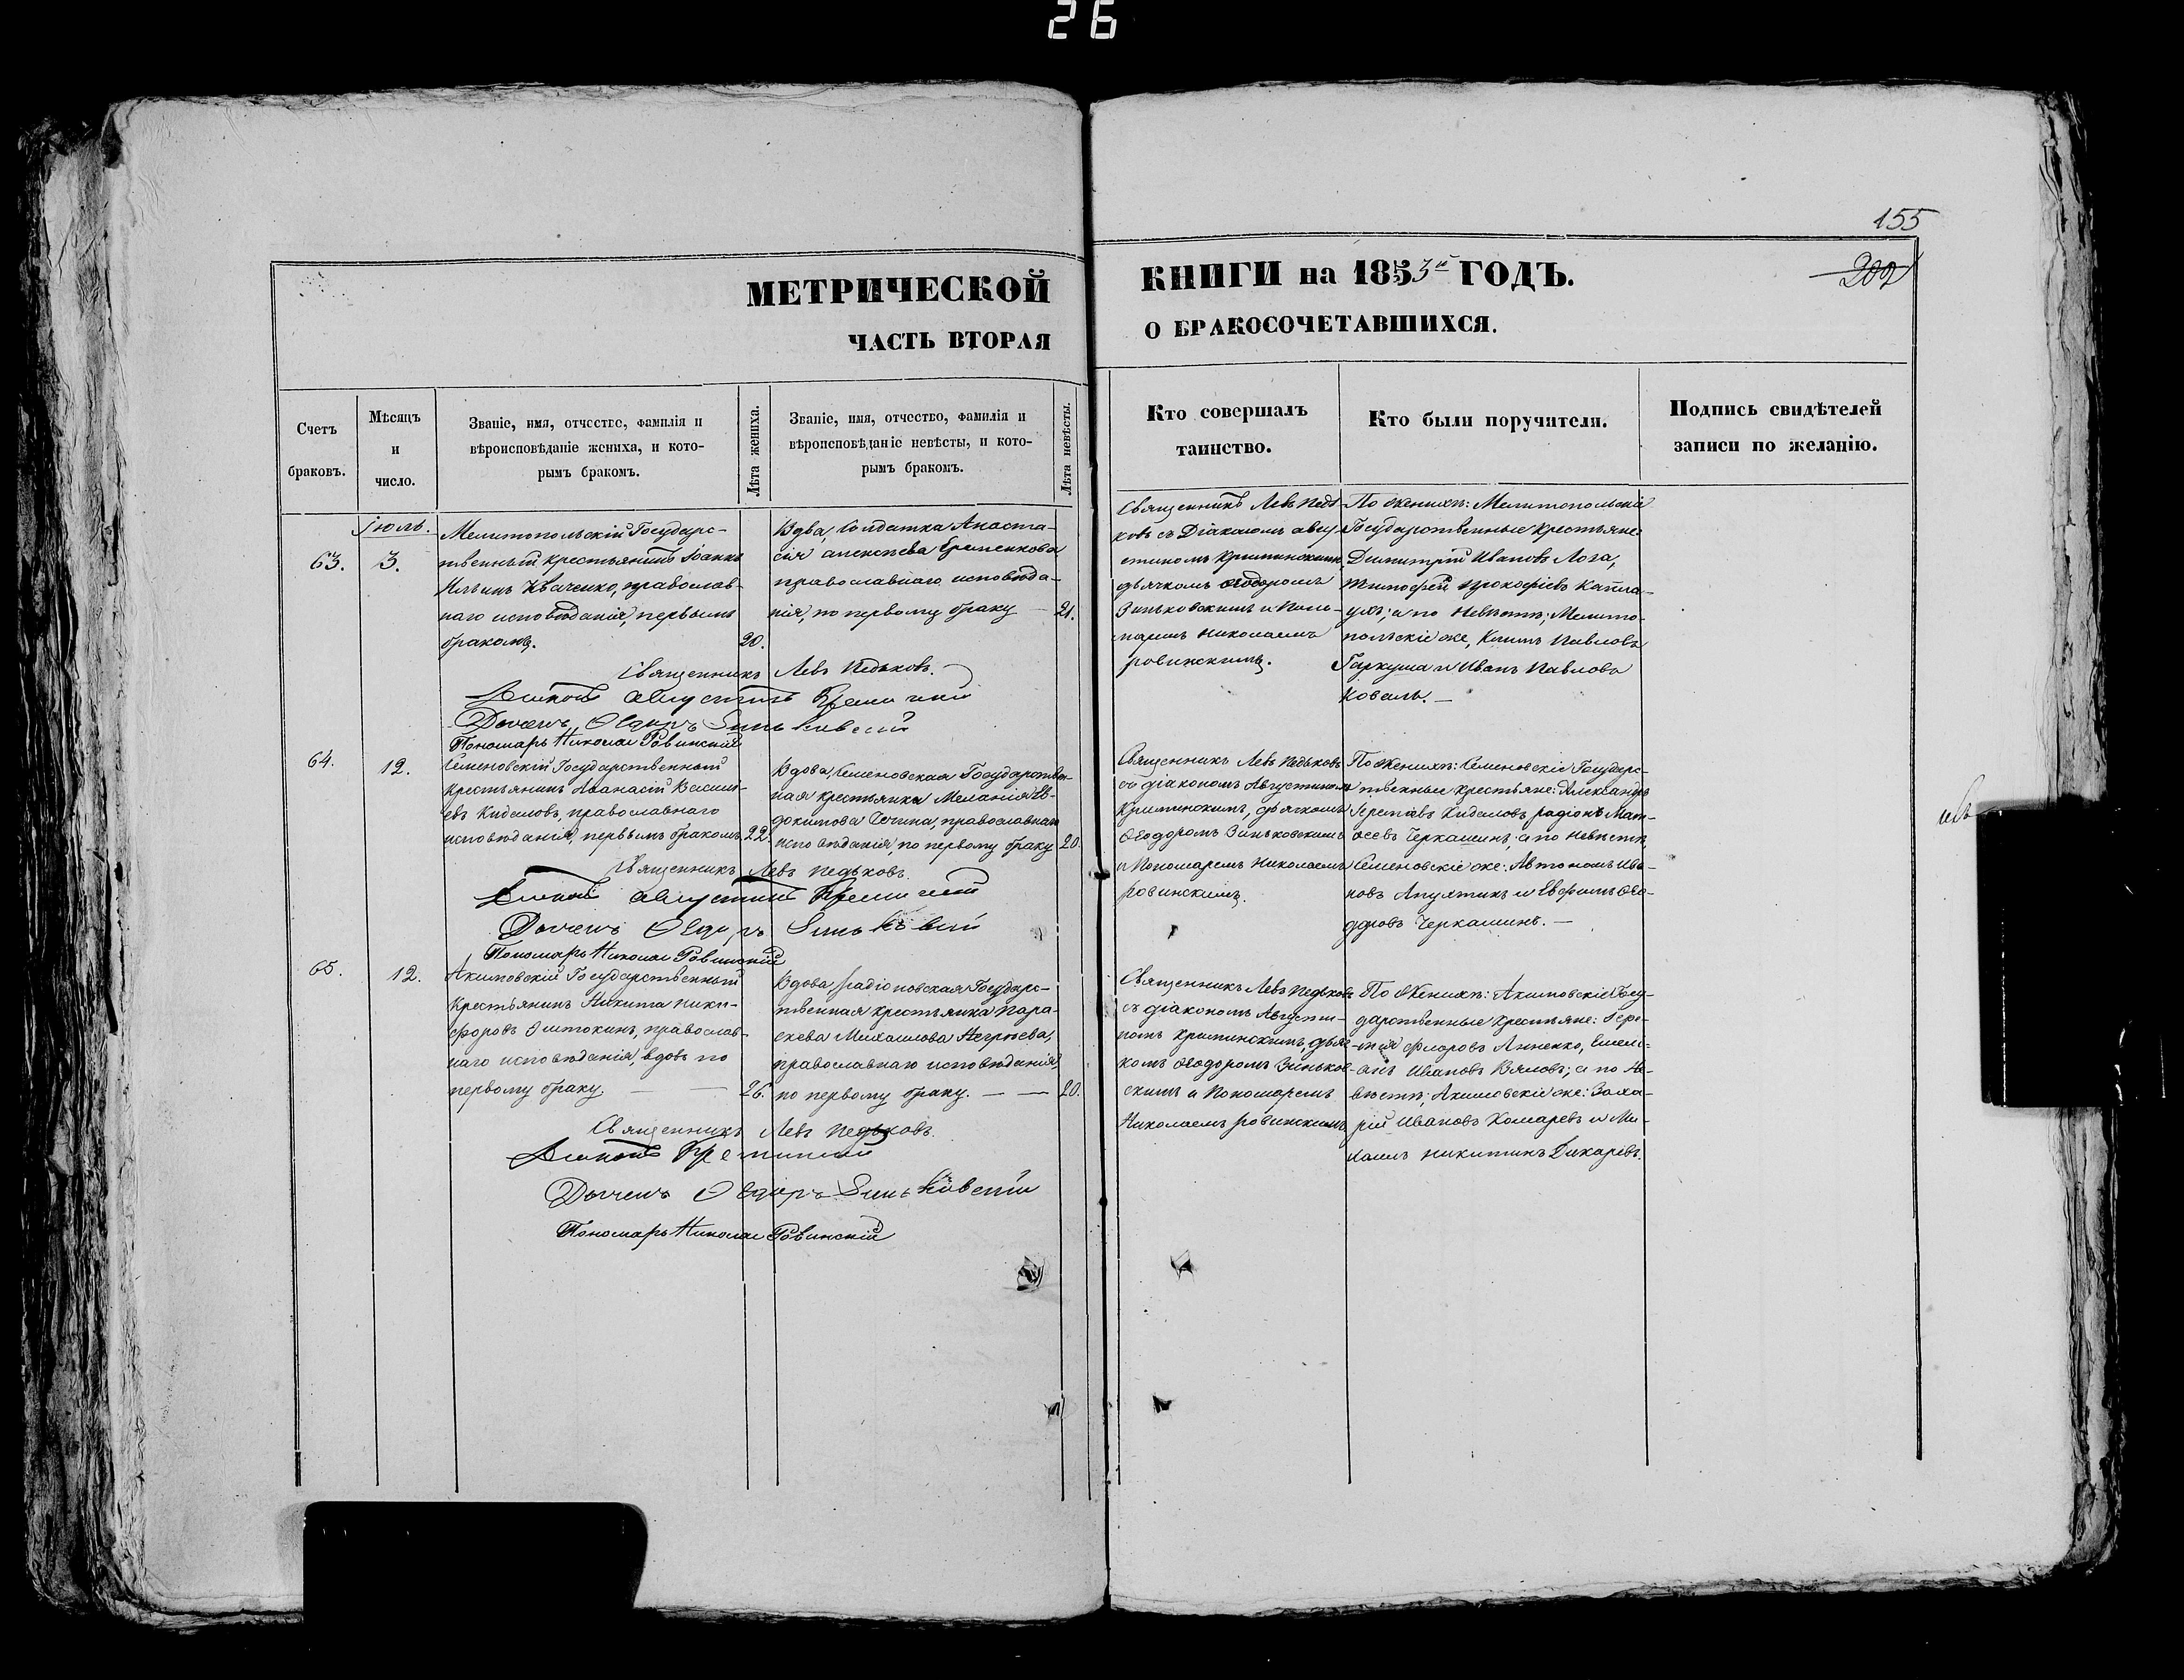 26
155
200
МЕТРИЧЕСКОЙ
КНИГИ на 1853й ГОДЪ.
ЧАСТЬ ВТОРАЯ
О БРАКОСОЧЕТАВШИХСЯ.
Счетъ
браковъ.
Мѣсяцъ
и
число.
Званіе, имя, отчество, фамилія и
вѣроисповѣданіе жениха, и кото-
рымъ бракомъ.
Лѣта жениха.
Званіе, имя, отчество, фамилія и
вѣроисповѣданіе невѣсты, и кото-
рымъ бракомъ.
Лѣта невѣсты.
Кто совершалъ
таинство.
Кто были поручители.
Подпись свидѣтелей
записи по желанію.
63.
Іюль.
3.
Мелитопольскій Государс-
твенный крестьянинъ Іоаннъ
Ильинъ Кваченко, православ-
наго исповѣданія, первымъ
бракомъ.
20.
Вдва, Солдатка Анаста-
сія Алексѣева Еременкова
православнаго исповѣда-
нія, по первому браку —
21.
Священникъ Левъ Педь-
ковъ съ Діакономъ авгу-
стиномъ Криминскимъ,
дьячкомъ Ѳеодоромъ
Зиньковскимъ и Поно-
маремъ Николаемъ
ровинскимъ.
По Женихѣ: Мелитопольскіе
Государственные крестьяне
Димитрій Ивановъ Лоза,
Тимофей Прокофіевъ
а по Невѣстѣ; Мелито-
польскіе же, Павловъ
Гаркуша и Иванъ Павловъ
Коваль. —
Священникъ Левъ Педьковъ.
Діаконъ Августинъ
Дьячекъ Ѳедоръ Зиньковскій
Пономарь Николай Ровинскій
64.
12.
Семеновскій Государственный
Крестьянинъ Аѳанасій Василь-
евъ Кидаловъ, православнаго
исповѣданія, первымъ бракомъ
22.
Вдова, Семеновская Государствен-
ная крестьянка Меланія Ев-
докимова православнаго
исповѣданія, по первому браку
20.
Священникъ Левъ Педьковъ
съ діакономъ Августиномъ
Криминскимъ, дьячкомъ
Ѳеодоромъ Зиньковскимъ
и Пономаремъ Николаемъ
Ровинскимъ.
По Женихѣ: Семеновскіе Государс-
твенные крестьяне: Александръ
Кидаловъ радіонъ Мат-
Черкашинъ; а по невѣстѣ,
Семеновскіе же: Автономъ Ива-
новъ и Ефимъ Ѳео-
доровъ Черкашинъ. —
Священникъ Левъ Педьковъ.
Діаконъ Августинъ
Дьячекъ Ѳедоръ Зиньковскій
Пономарь Николай Ровинскій
65.
12.
Акимовскій Государственный
Крестьянинъ Никита Ники-
форовъ православ-
наго исповѣданія, вдовъ по
первому браку —
26.
Вдова, радіоновская Государс-
твенная крестьянка Пара-
скева Михаилова
православнаго исповѣданія,
по первому браку. — —
20.
Священникъ Левъ Педьковъ
съ діакономъ Августи-
номъ Криминскимъ, дьяч-
комъ Ѳеодоромъ Зиньков-
скимъ и Пономаремъ
Николаемъ ровинскимъ
По Женихѣ: Акимовскіе Госу-
дарственные Крестьяне:
Флоровъ Емель-
анъ Ивановъ Вяловъ; а по Не-
вѣстѣ; Акимовскіе же: Заха-
рій Ивановъ Комаревъ и Ми-
хаилъ Никитинъ Дикаревъ.
Священникъ Левъ Педьковъ.
Діаконъ
Дьячекъ Ѳедоръ Зиньковскій
Пономарь Николай Ровинскій